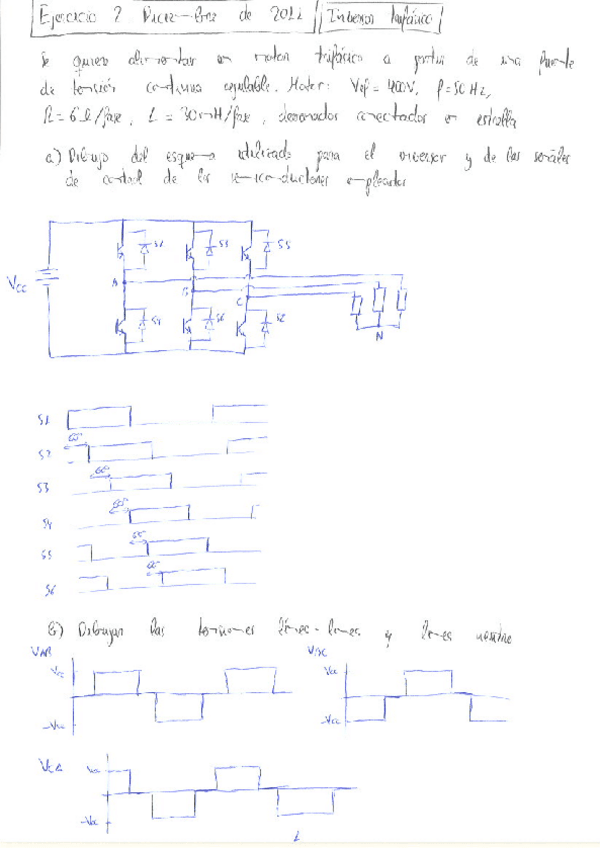 Ejercicio 2 Diciembre de 2011 Inversor trifásico
Se quiere alimentar un motor trifásico a partir de una fuente
de tensión continua regulable. Motor: Vef = 400V, f = 50 Hz,
R = 6Ω/fase, L = 30mH/fase, devanados conectados en estrella
a) Dibujo del esquema utilizado para el inversor y de las señales
de control de los semiconductores empleados
S1 S3 S5
Vcc
A
B
C
S4 S6 S2
N
S1
60°
S2
60°
S3
60°
S4
60°
S5
60°
S6
b) Dibujar las tensiones línea-línea y línea neutro
VAB VBC
Vcc Vcc
-Vcc -Vcc
VCA Vcc
-Vcc
1